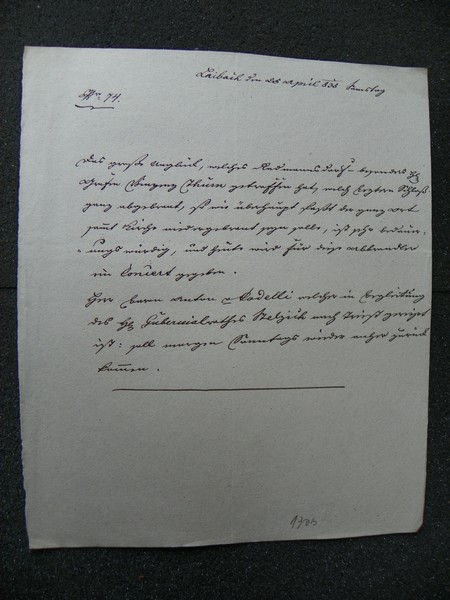 Laibach den 28 April 838 Samstag
N° 74.
Das große Unglück, welches Radmannsdorf besonders H
Grafen Vinzenz Thurn getroffen hat, welch letztern Schloß
ganz abgebrant, ist wie überhaupt fast der ganze ort
samt Kirche niedergebrant seyn solle, ist sehr bedauer„
„ungs würdig, und heute wird für diese abbrandler
ein Concert gegeben.
Herr Baron Anton v Codelli welcher in begleitung
des H Gubernialrathes nach Triest gereist
ist: soll morgen Sonntags wieder anher zurück
kommen.
1703